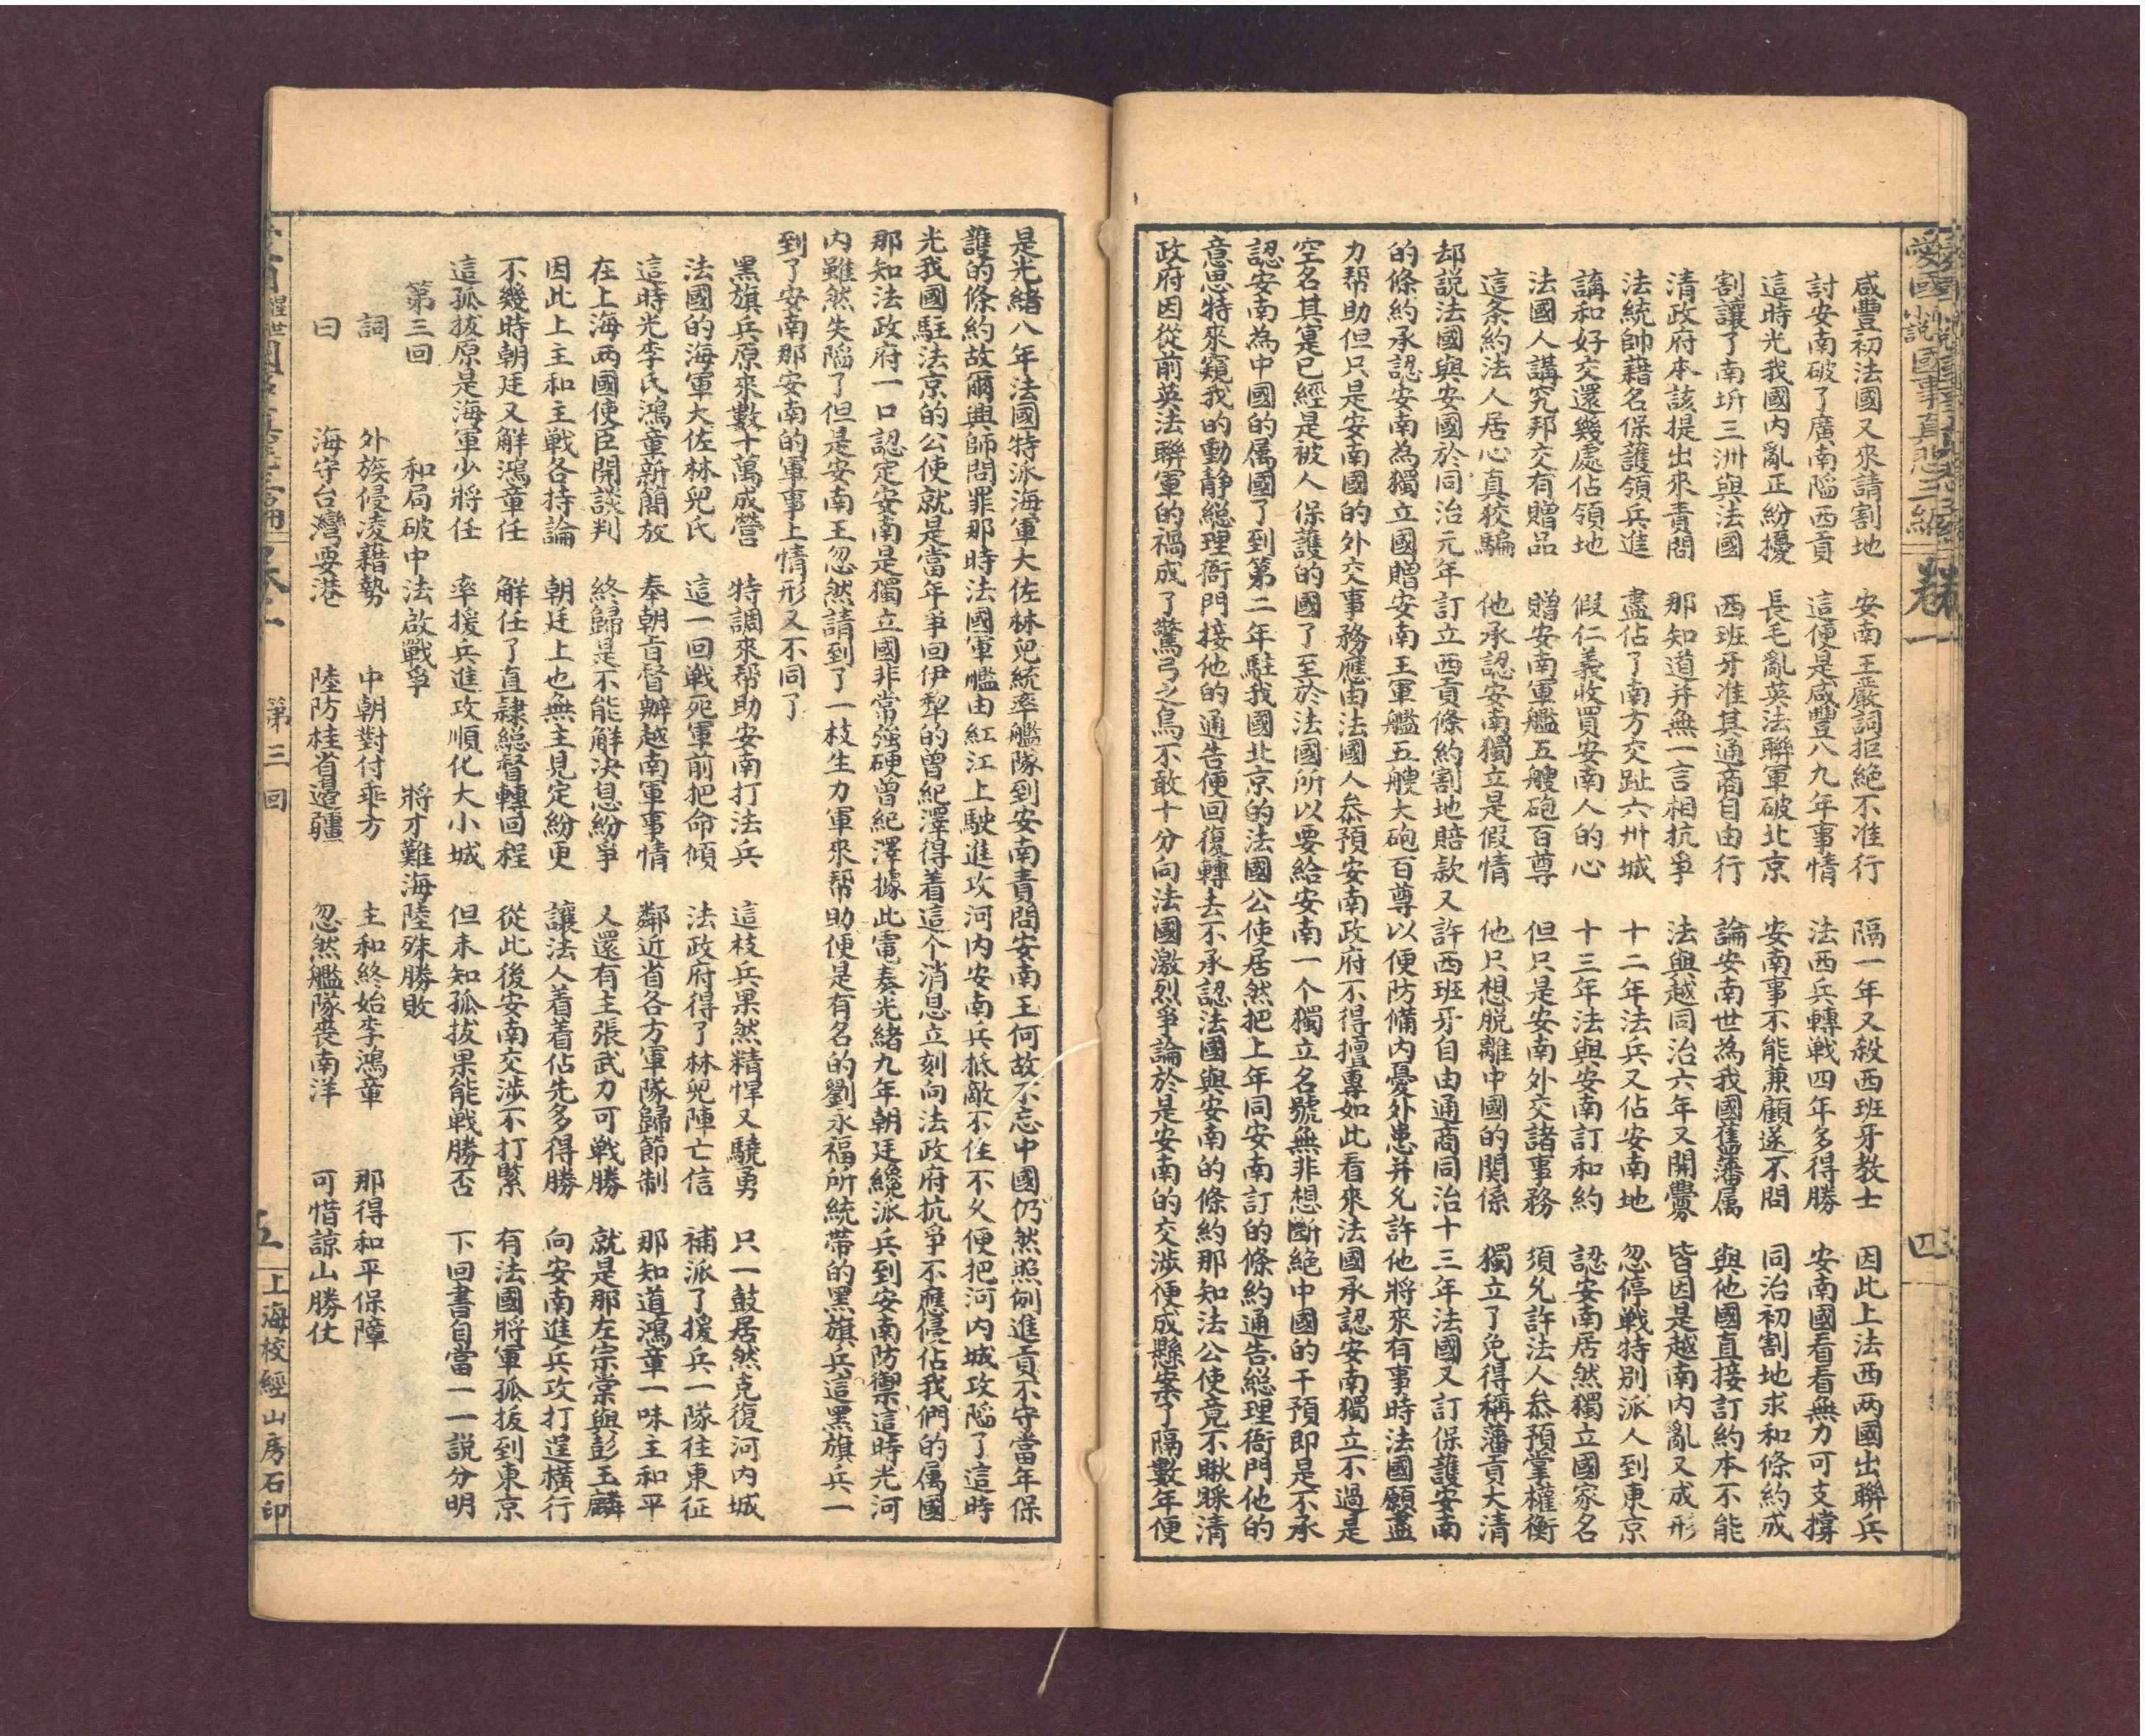 愛國小說國事真悲三編 卷一 四
咸豐初法國又來請割地 安南王嚴詞拒絕不准行 隔一年又殺西班牙教士 因此上法西两國出聯兵
討安南破了廣南陷西貢 這便是咸豐八九年事情 法西兵轉戰四年多得勝 安南國看看無力可支撐
這時光我國內亂正紛擾 長毛亂英法聯軍破北京 安南事不能兼顧遂不問 同治初割地求和條約成
割讓了南圻三洲與法國 西班牙准其通商自由行 論安南世為我國舊藩属 與他國直接訂約本不能
清政府本該提出來責問 那知道并無一言相抗爭 法與越同治六年又開釁 皆因是越南內亂又成形
法統帥藉名保護領兵進 盡佔了南方交趾六州城 十二年法兵又佔安南地 忽停戰特別派人到東京
講和好交還幾處佔領地 假仁義收買安南人的心 十三年法與安南訂和約 認安南居然獨立國家名
法國人講究邦交有贈品 贈安南軍艦五艘砲百尊 但只是安南外交諸事務 須允許法人叅預掌權衡
這条約法人居心真狡騙 他承認安南獨立是假情 他只想脱離中國的関係 獨立了免得稱藩貢大清
却説法國與安國於同治元年訂立西貢條約割地賠款又許西班牙自由通商同治十三年法國又訂保護安南
的條約承認安南為獨立國贈安南王軍艦五艘大砲百尊以便防備内憂外患并允許他將來有事時法國願盡
力帮助但只是安南國的外交事務應由法國人叅預安南政府不得擅專如此看來法國承認安南獨立不過是
空名其寔已經是被人保護的國了至於法國所以要給安南一个獨立名號無非想断絕中國的干預即是不承
認安南為中國的属國了到第二年駐我國北京的法國公使居然把上年同安南訂的條約通告総理衙門他的
意思特來窺我的動静総理衙門接他的通告便回復轉去不承認法國與安南的條約那知法公使竟不瞅睬清
政府因從前英法聯軍的禍成了驚弓之鳥不敢十分向法國激烈爭論於是安南的交渉便成懸案了隔數年便
是光緒八年法國特派海軍大佐林兒統率艦隊到安南責問安南王何故不忘中國仍然照例進貢不守當年保
護的條約故爾興師問罪那時法國軍艦由紅江上駛進攻河内安南兵抵敵不住不久便把河内城攻陷了這時
光我國駐法京的公使就是當年爭回伊犁的曾紀澤得着這个消息立刻向法政府抗爭不應侵佔我們的属國
那知法政府一口認定安南是獨立國非常強硬曾紀澤據此電奏光緒九年朝廷纔派兵到安南防禦這時光河
内雖然失陷了但是安南王忽然請到了一枝生力軍來帮助便是有名的劉永福所統带的黑旗兵這黑旗兵一
到了安南那安南的軍事上情形又不同了
黑旗兵原來數十萬成營 特調來帮助安南打法兵 這枝兵果然精悍又驍勇 只一鼓居然克復河内城
法國的海軍大佐林兒氏 這一回戰死軍前把命傾 法政府得了林兒陣亡信 補派了援兵一隊往東征
這時光李氏鴻章新簡放 奉朝旨督辦越南軍事情 鄰近省各方軍隊歸節制 那知道鴻章一味主和平
在上海两國使臣開談判 終歸是不能解决息紛爭 又還有主張武力可戰勝 就是那左宗棠與彭玉麟
因此上主和主戰各持論 朝廷上也無主見定紛更 讓法人着着佔先多得勝 向安南進兵攻打逞橫行
不幾時朝廷又解鴻章任 解任了直隸総督轉回程 從此後安南交渉不打緊 有法國將軍孤拔到東京
這孤拔原是海軍少將任 率援兵進攻順化大小城 但未知孤拔果能戰勝否 下回書自當一一説分明
第三回 和局破中法啟戰爭 將才難海陸殊勝敗
詞 外族侵凌藉勢 中朝對付乘方 主和終始李鴻章 那得和平保障
曰 海守台灣要港 陸防桂省邊疆 忽然艦隊喪南洋 可惜諒山勝仗
第三回 五 上海校經山房石印